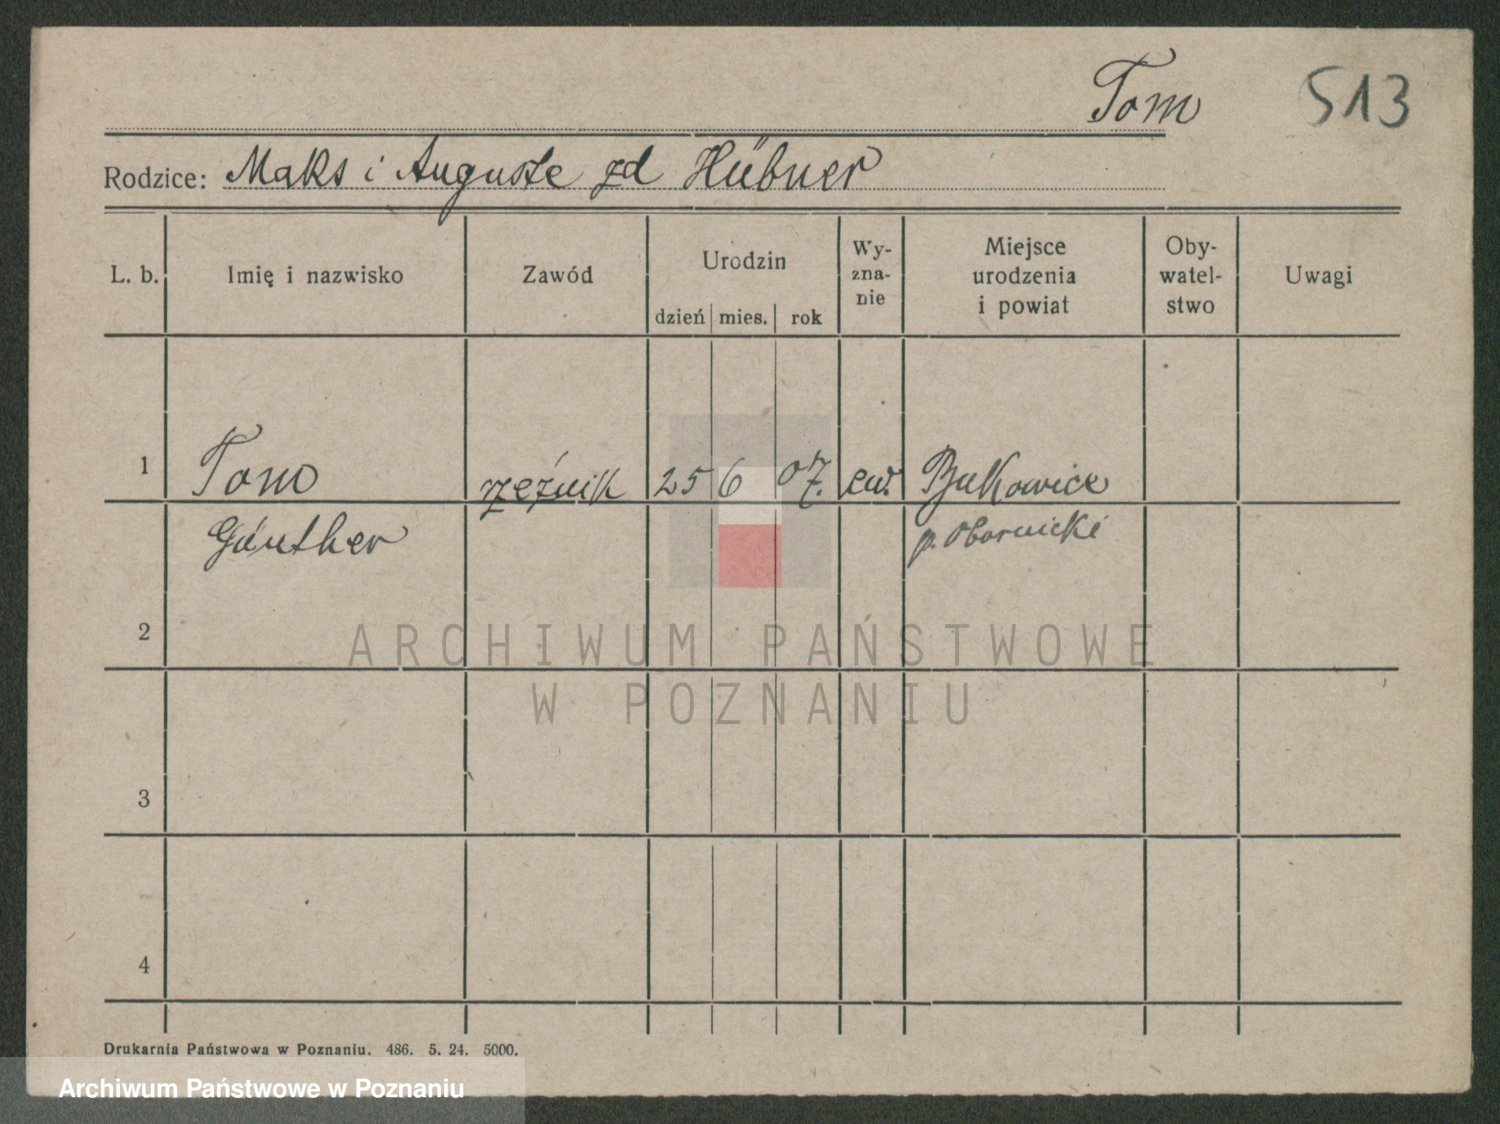 Tom 513
Rodzice: Maks i Auguste zd Hübner
L. b. Imię i nazwisko Zawód Urodzin dzień mies. rok Wy-zna-nie Miejsce urodzenia i powiat Oby-watel-stwo Uwagi
1 Tom rzeźnik 25 6 07. ew. Bukowice
Günther p. Obornicki
2
ARCHIWUM PAŃSTWOWE
W POZNANIU
3
4
Drukarnia Państwowa w Poznaniu. 486. 5. 24. 5000.
Archiwum Państwowe w Poznaniu